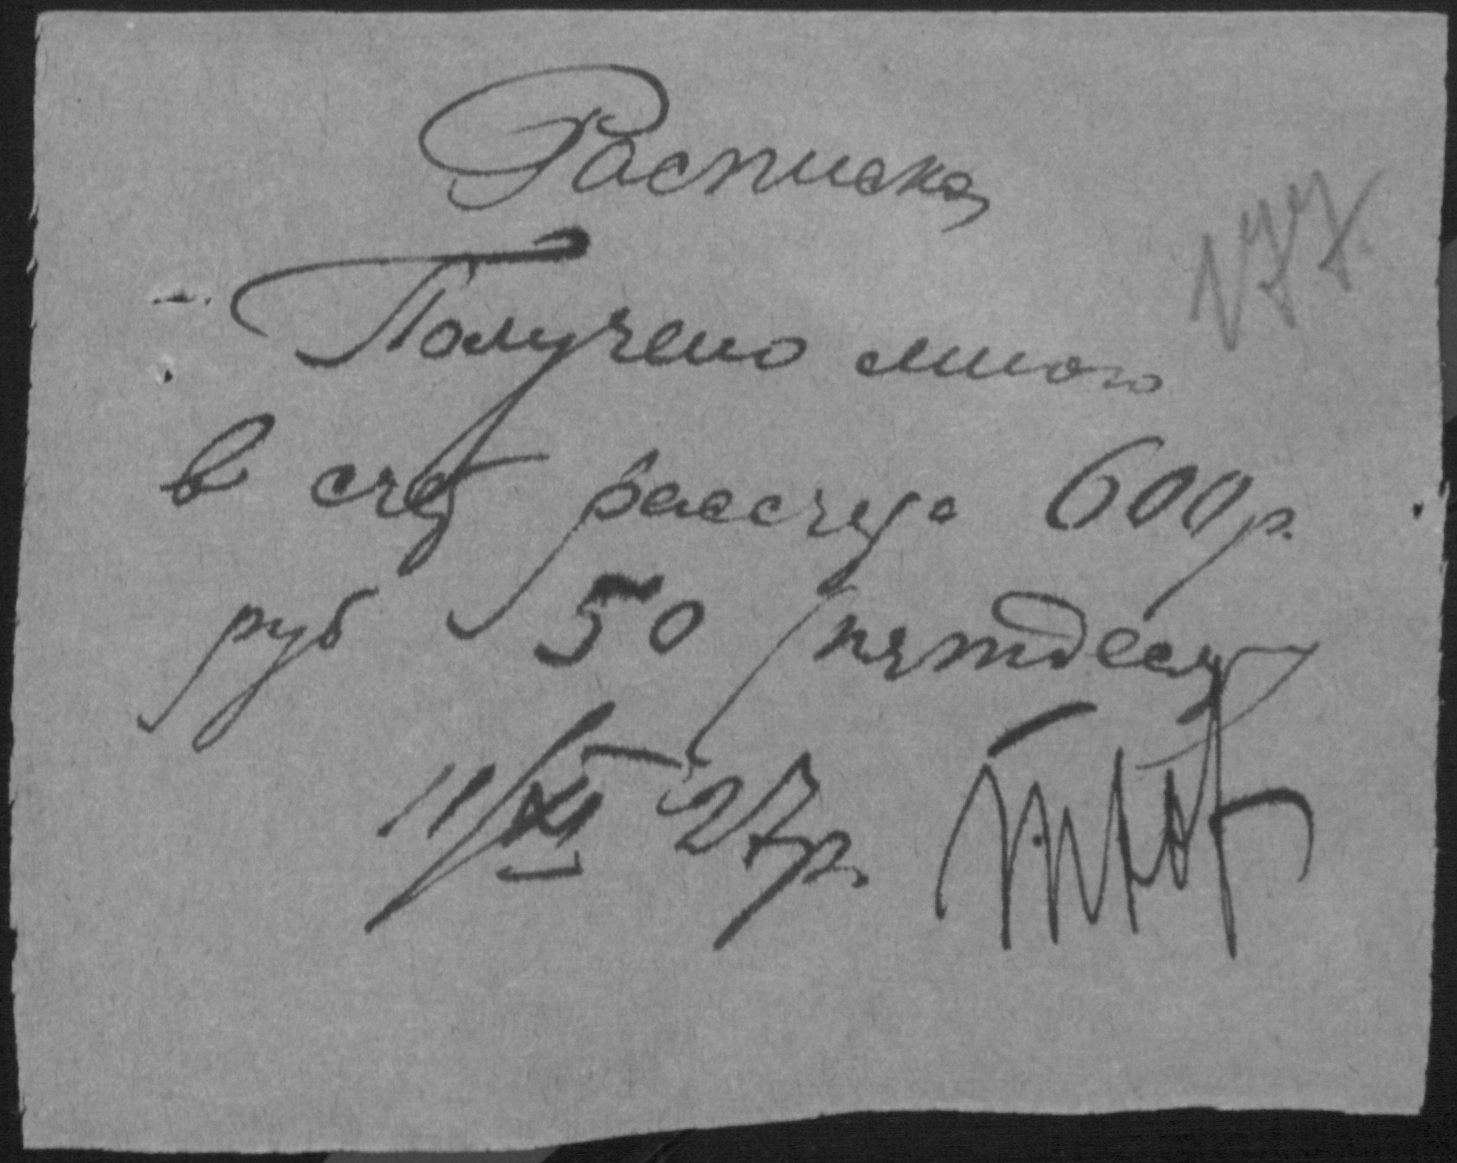 Расписка
№ 7.
Получено мною
в счет рассчета 600 р.
руб 50 пятдесят
11/XI 27 р.